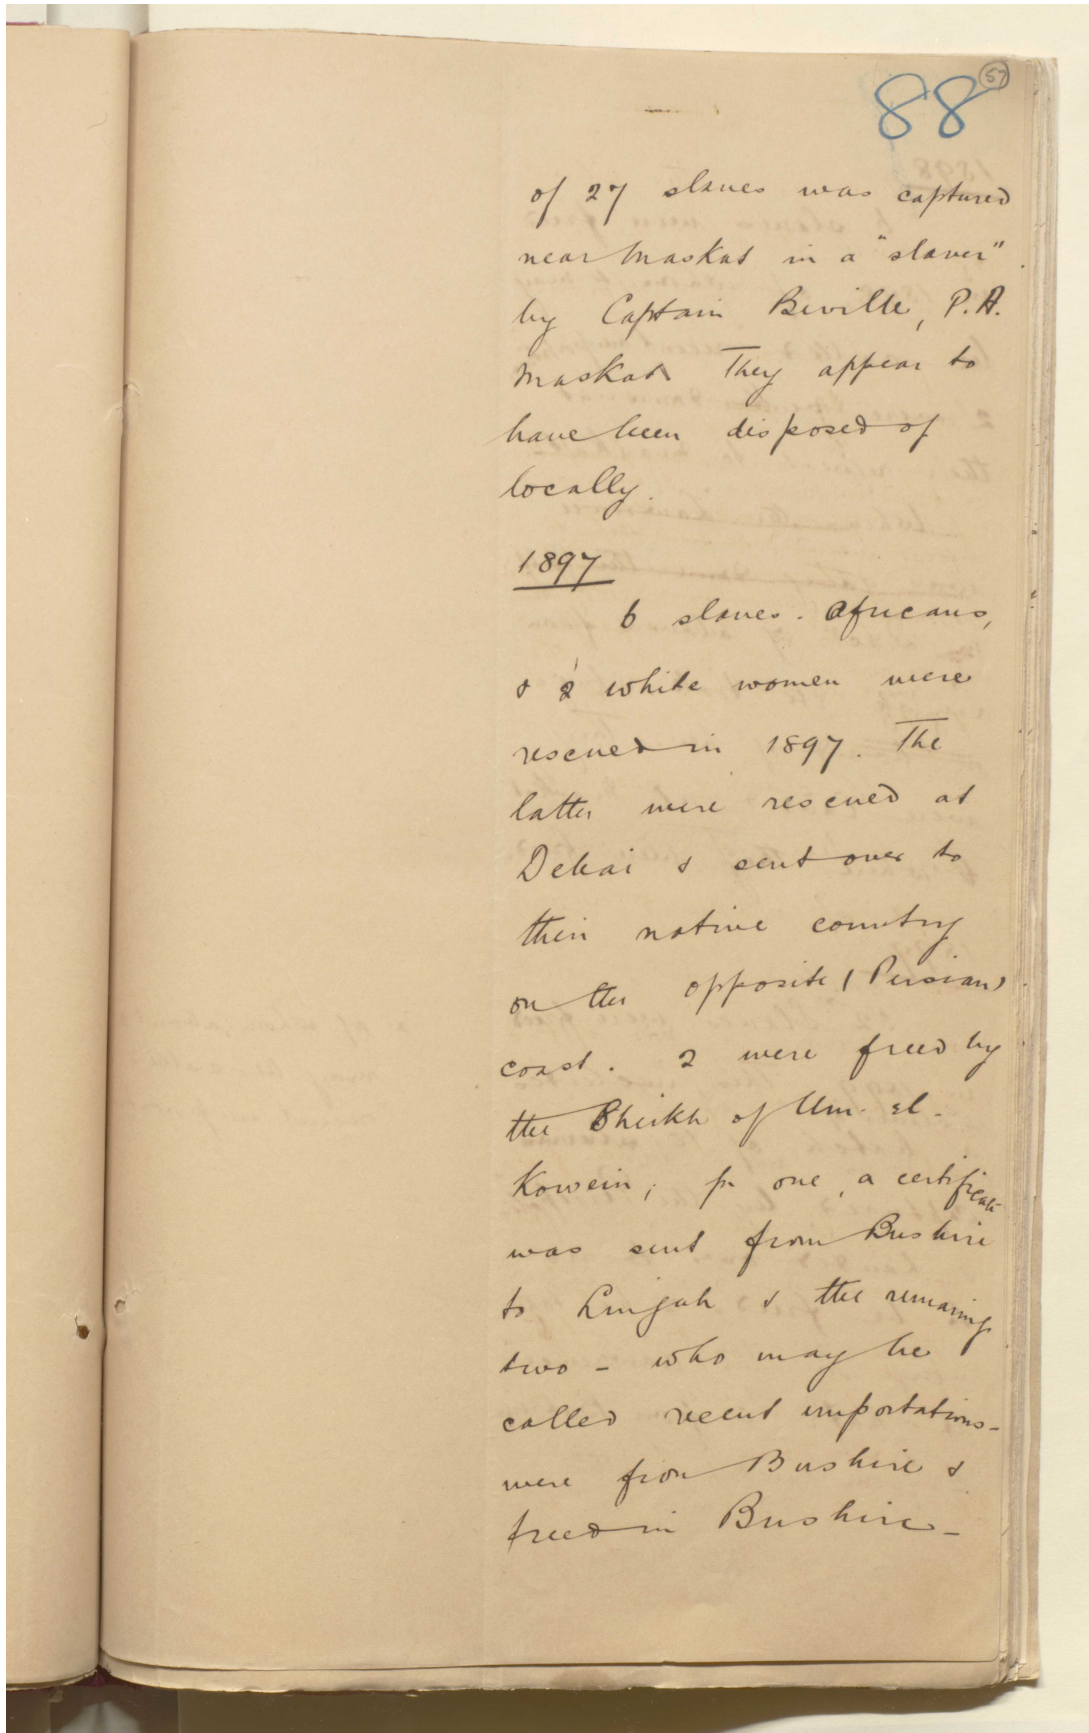 57
88
of 27 slaves was captured
near Maskat in a "slaver"
by Captain Beville, P.A.
Maskat. They appear to
have been disposed of
locally.
1897
6 slaves. Africans,
& 2 white women were
rescued in 1897. The
latter were rescued at
Debai & sent over to
their native country
on the opposite (Persian)
coast. 2 were freed by
the Sheikh of Um-el-
Kowein; for one, a certificate
was sent from Bushire
to Lingah & the remaing
two - who may be
called recent importations -
were from Bushire &
freed in Bushire -